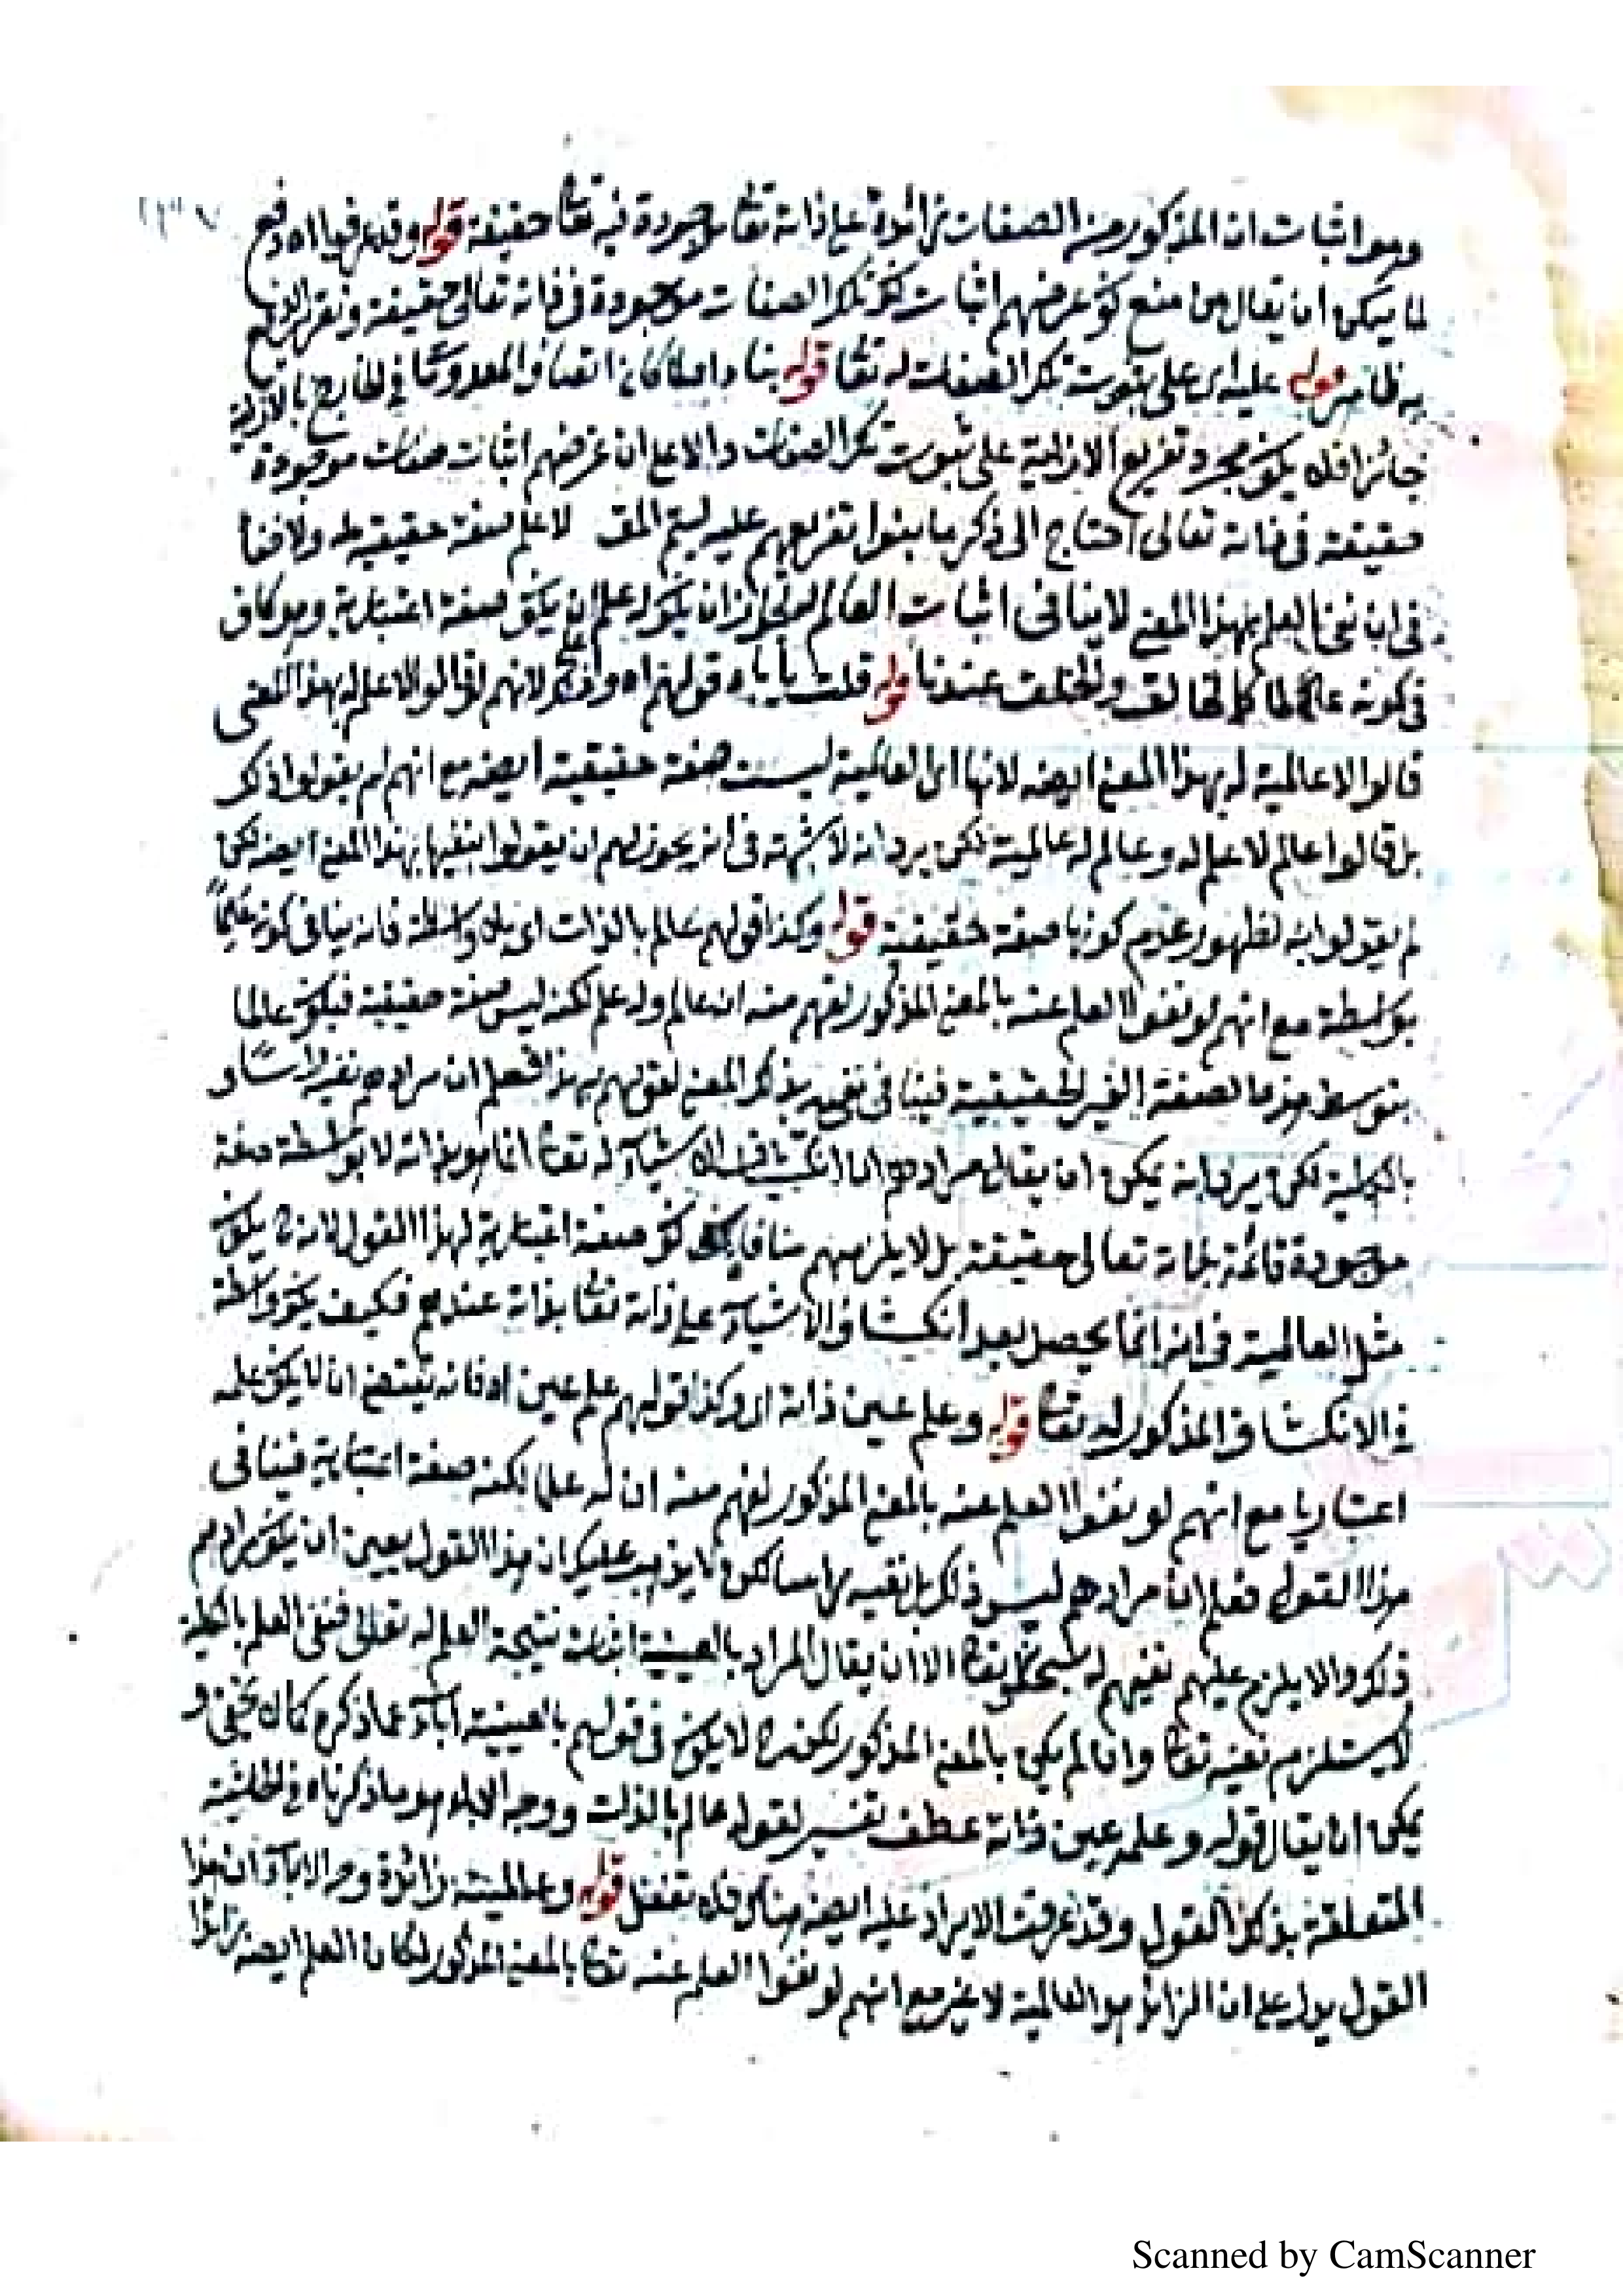 وهو اثبات ان المذكور من الصفات زائدة على ذاته تعا موجودة فيه تعا حقيقة قوله وقد عرفها اه دفع
لما يمكن ان يقال من منع كون غرضهم اثبات كون تلك الصفات موجودة في ذاته تعالى حقيقة وتقرير الدفع
به ظاهر قوله عليه اى على ثبوت تلك الصفات له تعا قوله بناء اه لما كان اتصاف المعدومات في الخارج بالازلية
جائزا فلا يكون مجرد تفريع الازلية على ثبوت تلك الصفات دالا على ان غرضهم اثبات صفات موجودة
حقيقة في ذاته تعالى احتاج الى ذكر ما بنوا تفريعهم عليه ليتم المق لا علم صفة حقيقية له ولا خفأ
في ان نفى العلم بهذا المعنى لا ينافى اثبات العالم لجواز ان يكون له علم بان يكون صفة اعتبارية وهو كاف
في كونه عالما قوله قلت يأباه قولهم اه وذلك لانهم لو قالوا لا علم له بهذا المعنى
قالوا لا عالمية له بهذا المعنى ايضه لانها اى العالمية ليست صفة حقيقية ايضه مع انهم لم يقولوا ذلك
بل قالوا عالم لا علم له وعالم له عالمية لكن يرد انه لا شبهة في انه يجوز لهم ان يقولوا بنفيها بهذا المعنى ايضه لكن
لم يقولوا به لظهور عدم كونها صفة حقيقية قوله وكذا قولهم عالم بالذات اى بلا واسطة فانه ينافى كونه عالما
بواسطة مع انهم لو نفوا العلم عنه بالمعنى المذكور لفهم منه ان عالم وله علم لكنه ليس صفة حقيقية فيكون عالما
بتوسط هذه الصفة الغير الحقيقية فينافى نفيه بذلك المعنى لقولهم بهذا فعلم ان مرادهم نفيه راسا و
بالكلية لكن يرد انه يمكن ان يقال مرادهم ان انكشاف الاشياء له تعا انما هو بذاته لا بواسطة صفة
موجودة قائمة بذاته تعالى حقيقة بل لا يلزمهم منافاة كون صفة اعتبارية لهذا القول لانه ح يكون
مثل العالمية في انه انما يحصل بعد انكشاف الاشياء على ذاته تعا بذاته عندهم فكيف يكون واسطة
في الانكشاف المذكور له تعا قوله وعلمه عين ذاته اى وكذا قولهم علمه عين اه فانه يقتضى ان لا يكون علمه
اعتباريا مع انهم لو نفوا العلم عنه بالمعنى المذكور لفهم منه ان له علما لكنه صفة اعتبارية فينافى
هذا القول فعلم ان مرادهم ليس ذلك بل نفيه راسا لكن لا يذهب عليك ان هذا القول يعين ان يكون مرادهم
ذلك والا يلزم عليهم نفيهم له تعا الا ان يقال المراد بالعينية اثبات نتيجة العلم له تعالى فنفى العلم بالكلية
لا يستلزم نفيه تعا وان لم يكن بالمعنى المذكور لكن ح لا يكون في قولهم بالعينية اباء عما ذكر كما لا يخفى و
يمكن ان يقال قوله وعلمه عين ذاته عطف تفسير لقوله عالم بالذات ووجه الاباء هو ما ذكرناه في الحاشية
المتعلقة بذلك القول وقد عرفت الايراد عليه ايضه هناك فلا تغفل قوله وعالميته زائدة وجه الاباء ان هذا
القول يدل على ان الزائد هو العالمية لا غير مع انهم لو نفوا العلم عنه تعا بالمعنى المذكور لكان العلم ايضه زائدا
Scanned by CamScanner